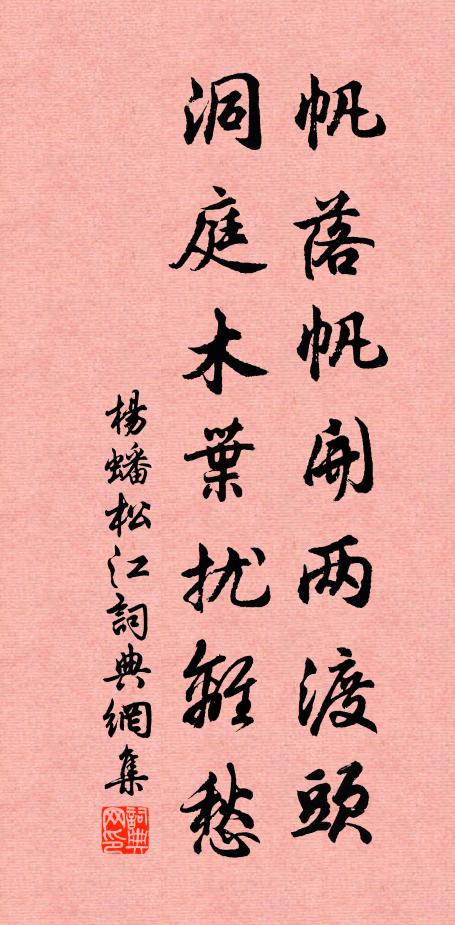 帆落帆開两渡頭
洞庭木葉扰離愁
楊蟠松江詞典網集
詞典网印